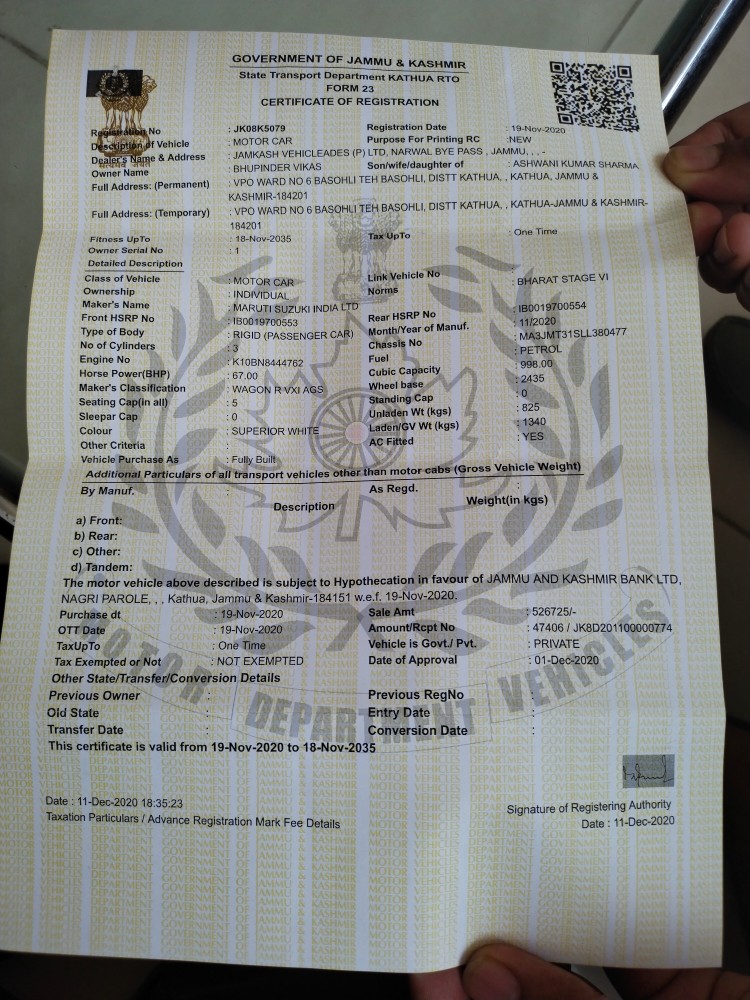 GOVERNMENT OF JAMMU & KASHMIR
State Transport Department KATHUA RTO
FORM 23
CERTIFICATE OF REGISTRATION
सत्यमेव जयते
Registration No : JK08K5079 Registration Date : 19-Nov-2020
Description of Vehicle : MOTOR CAR Purpose For Printing RC :NEW
Dealer's Name & Address : JAMKASH VEHICLEADES (P) LTD, NARWAL BYE PASS , JAMMU, , , -
Owner Name : BHUPINDER VIKAS Son/wife/daughter of : ASHWANI KUMAR SHARMA
Full Address: (Permanent) : VPO WARD NO 6 BASOHLI TEH BASOHLI, DISTT KATHUA, , KATHUA, JAMMU &
KASHMIR-184201
Full Address: (Temporary) : VPO WARD NO 6 BASOHLI TEH BASOHLI, DISTT KATHUA, , KATHUA-JAMMU & KASHMIR-
184201
Fitness UpTo : 18-Nov-2035 Tax UpTo : One Time
Owner Serial No : 1
Detailed Description
Class of Vehicle : MOTOR CAR Link Vehicle No :
Ownership : INDIVIDUAL Norms : BHARAT STAGE VI
Maker's Name : MARUTI SUZUKI INDIA LTD
Front HSRP No : IB0019700553 Rear HSRP No : IB0019700554
Type of Body : RIGID (PASSENGER CAR) Month/Year of Manuf. : 11/2020
No of Cylinders : 3 Chassis No : MA3JMT31SLL380477
Engine No : K10BN8444762 Fuel : PETROL
Horse Power(BHP) : 67.00 Cubic Capacity : 998.00
Maker's Classification : WAGON R VXI AGS Wheel base : 2435
Seating Cap(in all) : 5 Standing Cap : 0
Sleepar Cap : 0 Unladen Wt (kgs) : 825
Colour : SUPERIOR WHITE Laden/GV Wt (kgs) : 1340
Other Criteria : AC Fitted : YES
Vehicle Purchase As : Fully Built
Additional Particulars of all transport vehicles other than motor cabs (Gross Vehicle Weight)
By Manuf. : As Regd. :
Description Weight(in kgs)
a) Front:
b) Rear:
c) Other:
d) Tandem:
The motor vehicle above described is subject to Hypothecation in favour of JAMMU AND KASHMIR BANK LTD,
NAGRI PAROLE, , , Kathua, Jammu & Kashmir-184151 w.e.f. 19-Nov-2020.
Purchase dt : 19-Nov-2020 Sale Amt : 526725/-
OTT Date : 19-Nov-2020 Amount/Rcpt No : 47406 / JK8D201100000774
TaxUpTo : One Time Vehicle is Govt./ Pvt. : PRIVATE
Tax Exempted or Not : NOT EXEMPTED Date of Approval : 01-Dec-2020
Other State/Transfer/Conversion Details
Previous Owner : Previous RegNo :
Old State : Entry Date :
Transfer Date : Conversion Date :
This certificate is valid from 19-Nov-2020 to 18-Nov-2035
MOTOR VEHICLES DEPARTMENT
Date : 11-Dec-2020 18:35:23 Signature of Registering Authority
Taxation Particulars / Advance Registration Mark Fee Details Date : 11-Dec-2020